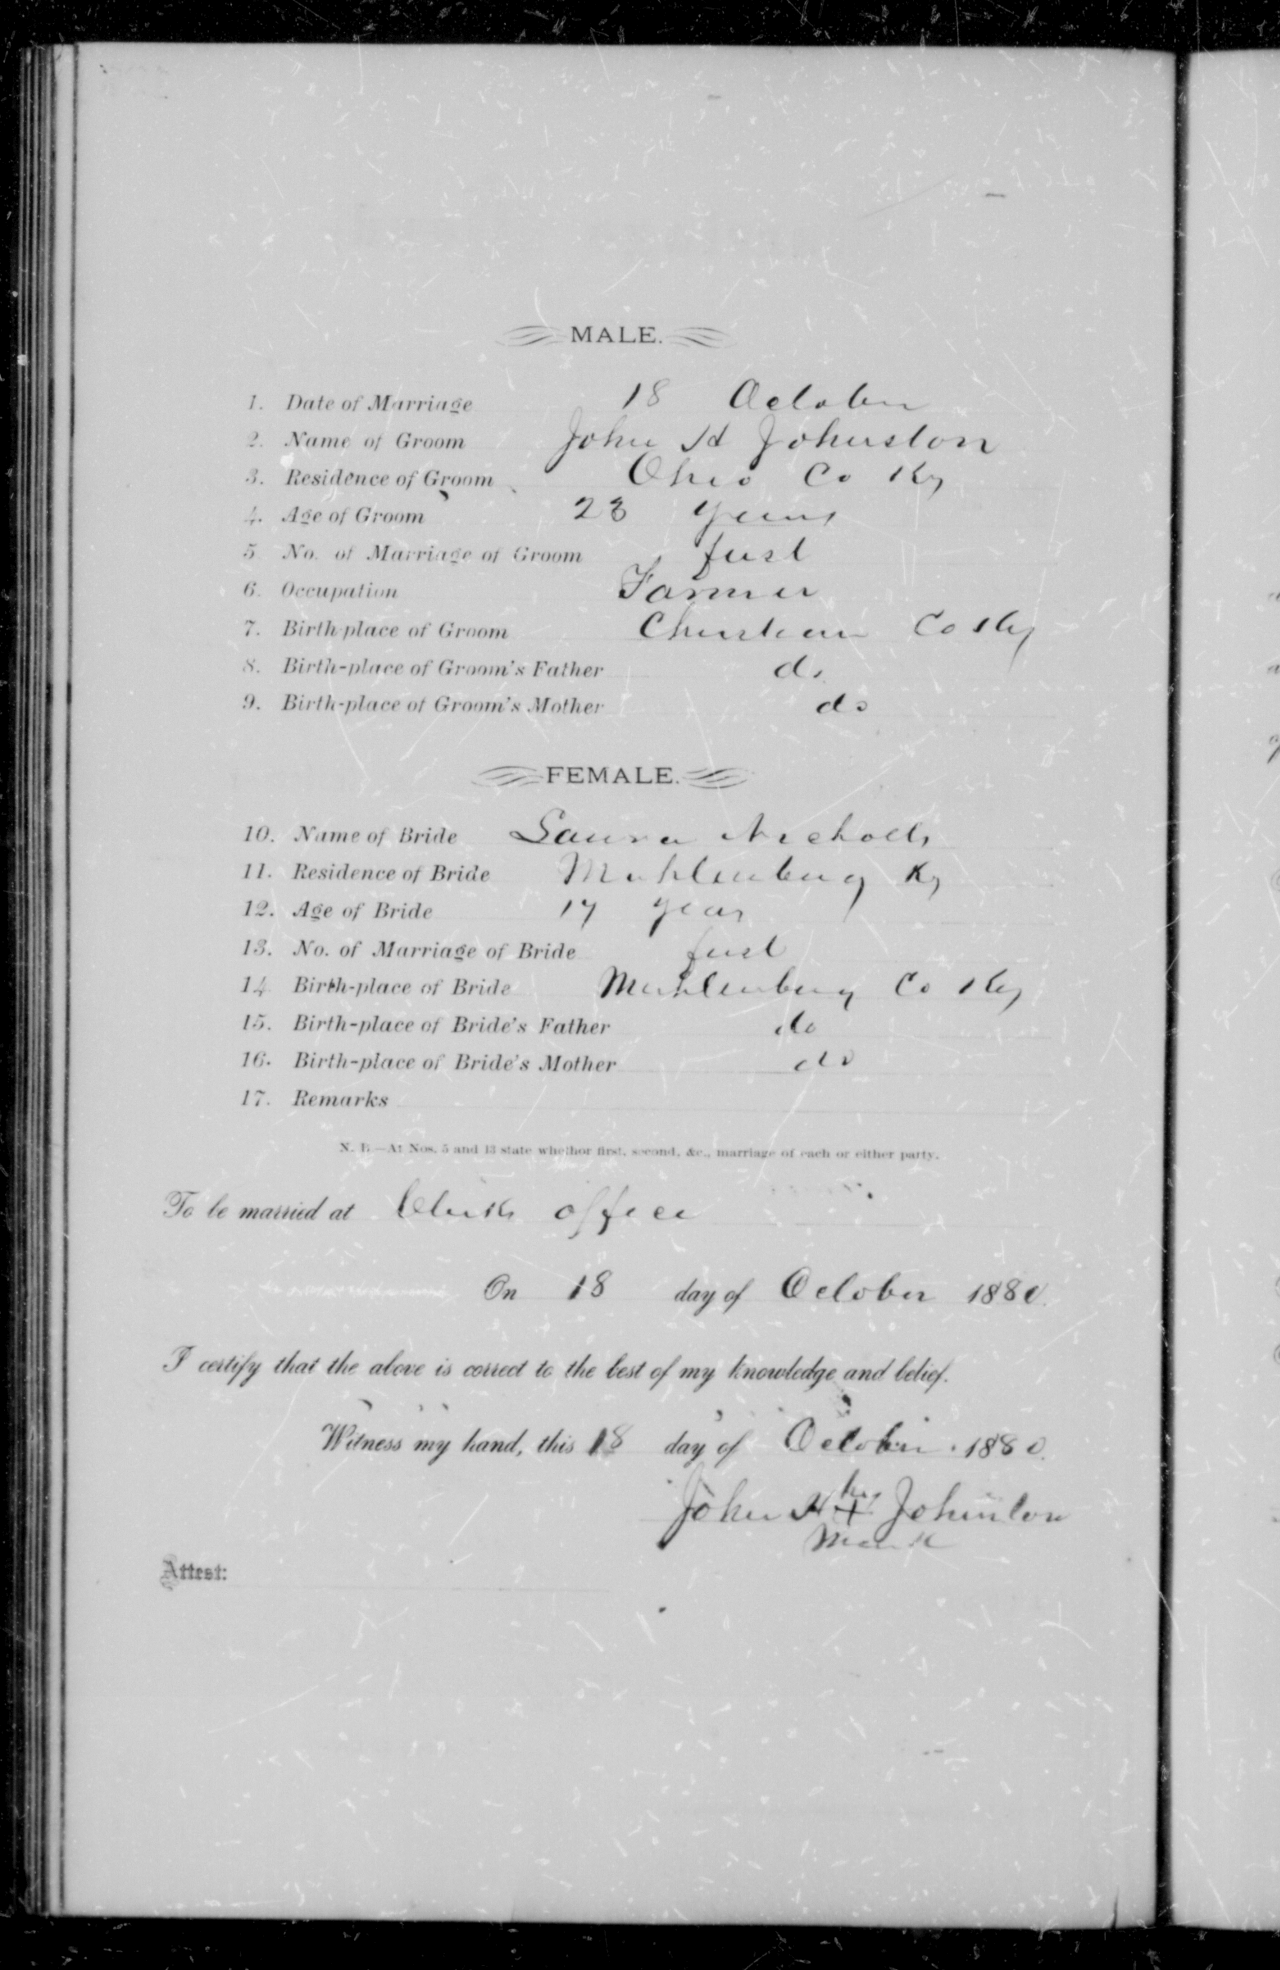 MALE.
1. Date of Marriage 18 October
2. Name of Groom John H Johnston
3. Residence of Groom Ohio Co Ky
4. Age of Groom 23 years
5 No. of Marriage of Groom first
6. Occupation Farmer
7. Birth-place of Groom Christian Co Ky
8. Birth-place of Groom's Father do
9. Birth-place of Groom's Mother do
FEMALE.
10. Name of Bride Laura Nicholls
11. Residence of Bride Muhlenburg Ky
12. Age of Bride 17 year
13. No. of Marriage of Bride first
14 Birth-place of Bride Muhlenburg Co Ky
15. Birth-place of Bride's Father do
16. Birth-place of Bride's Mother do
17. Remarks
N. B.—At Nos. 5 and 13 state whether first, second, &c., marriage of each or either party.
To be married at Clerks office
On 18 day of October 1880.
I certify that the above is correct to the best of my knowledge and belief.
Witness my hand, this 18 day of October 1880.
his
John H + Johnston
Mark
Attest: